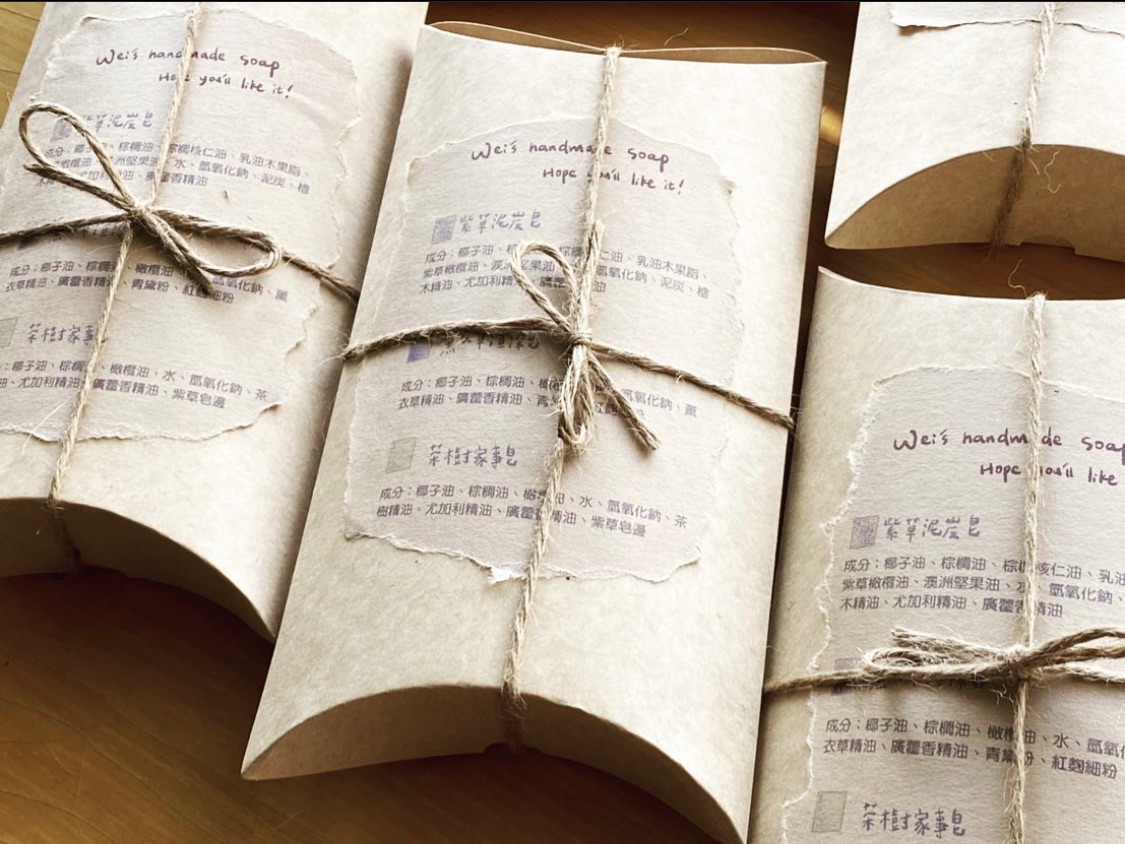 Wei's handmade soap
Hope you'll like it!
草泥炭皂
成分：椰子油、棕櫚油、棕櫚核仁油、乳油木果脂、
橄欖油、澳洲堅果油、水、氫氧化鈉、泥炭、檜
木精油、香精油
成分：椰子油、棕櫚油、橄欖油、氫氧化鈉、薰
衣草精油、廣藿香精油、青黛粉、紅麴細粉
茶樹家事
：椰子油、棕櫚油、橄欖油、水、氫氧化鈉、茶
油、尤加利精油、廣藿香精油、紫草皂邊
Wei's handmade soap
Hope you'll like it!
紫草泥炭皂
成分：椰子油、棕櫚油、棕櫚仁油、乳油木果脂、
紫草橄欖油、澳洲堅果油、氫氧化鈉、泥炭、檜
木精油、尤加利精油、油
成分：椰子油、棕櫚油、氫氧化鈉、薰
衣草精油、廣藿香精油、青紅麴細粉
茶樹家事皂
成分：椰子油、棕櫚油、橄欖油、水、氫氧化鈉、茶
樹精油、尤加利精油、廣藿香精油、紫草皂邊
Wei's handmade soap
Hope you'll like
紫草泥炭皂
成分：椰子油、棕櫚油、棕櫚核仁油、乳油
紫草橄欖油、澳洲堅果油、水、氫氧化鈉、
木精油、尤加利精油、廣藿香精油
成分：椰子油、棕櫚油、橄欖油、水、氫氧
衣草精油、廣藿香精油、青黛粉、紅麴細粉
茶樹家事皂